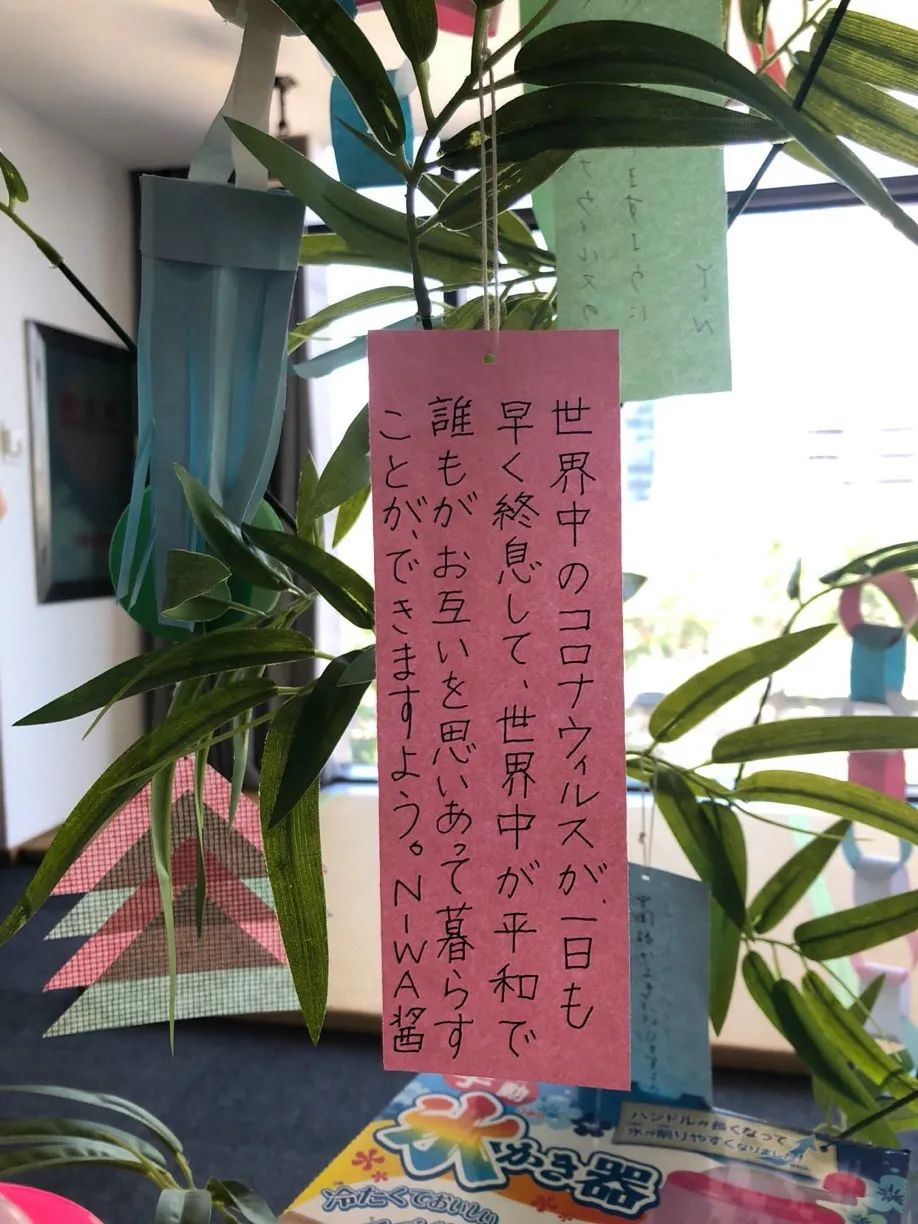 世界中のコロナウィルスが、一日も
早く終息して、世界中が平和で
誰もがお互いを思いあって暮らす
ことが、できますよう。NIWA醤
ますように
ナウィルスの
Y.N
手動
氷かき器
冷たくておいしい
ハンドルが長くなって
氷が削りやすくなりました!